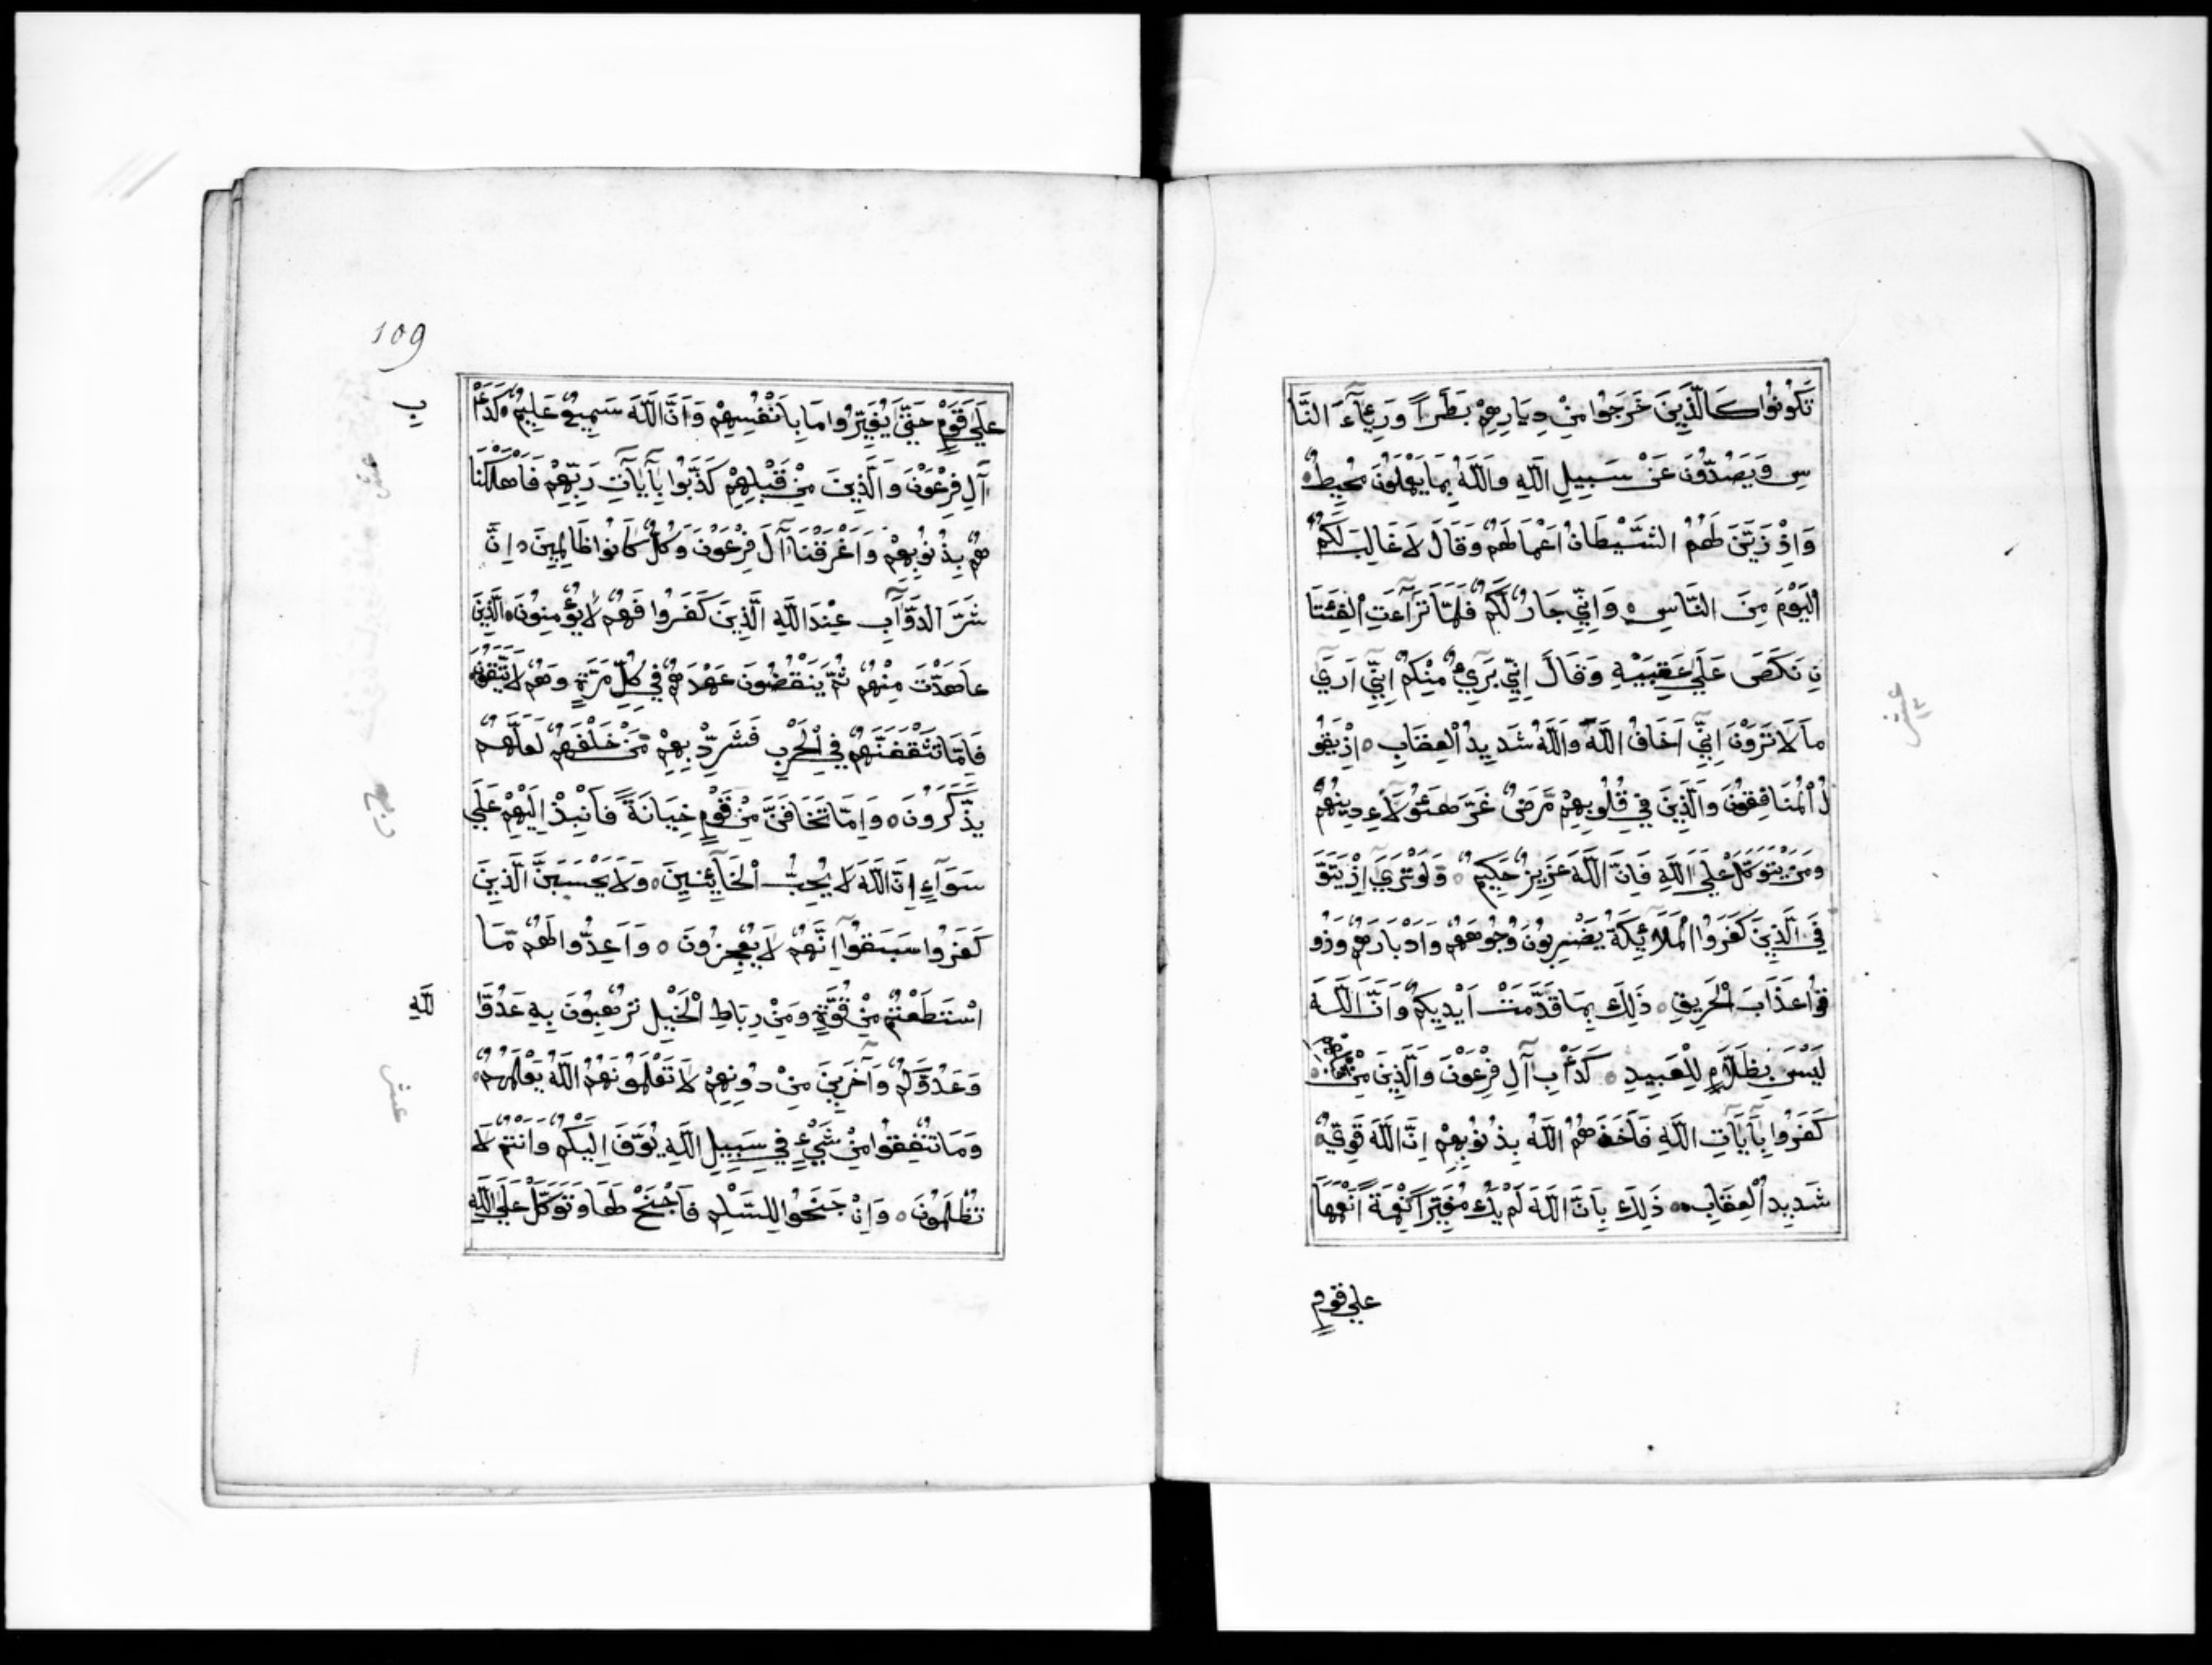 تَكُونُوا كَالَّذِينَ خَرَجُوا مِنْ دِيَارِهِمْ بَطَرًا وَرِئَآءَ النَّا
سِ وَيَصُدُّونَ عَنْ سَبِيلِ اللَّهِ وَاللَّهُ بِمَا يَعْمَلُونَ مُحِيطٌ
وَاِذْ زَيَّنَ لَهُمُ الشَّيْطَانُ اَعْمَالَهُمْ وَقَالَ لَا غَالِبَ لَكُمُ
الْيَوْمَ مِنَ النَّاسِ وَاِنِّي جَارٌ لَكُمْ فَلَمَّا تَرَآءَتِ الْفِئَتَا
نِ نَكَصَ عَلَي عَقِبَيْهِ وَقَالَ اِنِّي بَرِيءٌ مِنْكُمْ اِنِّي اَرَي
مَا لَا تَرَوْنَ اِنِّي اَخَافُ اللَّهَ وَاللَّهُ شَدِيدُ الْعِقَابِ ه اِذْ يَقُو
لُ الْمُنَافِقُونَ وَالَّذِينَ فِي قُلُوبِهِمْ مَرَضٌ غَرَّ هَئُولَاءِ دِينُهُمْ
وَمَنْ يَتَوَكَّلْ عَلَي اللَّهِ فَاِنَّ اللَّهَ عَزِيزٌ حَكِيمٌ ه وَلَوْ تَرَي اِذْ يَتَوَ
فَّي الَّذِينَ كَفَرُوا الْمَلَآئِكَةُ يَضْرِبُونَ وُجُوهَهُمْ وَاَدْبَارَهُمْ وَذُو
قُوا عَذَابَ الْحَرِيقِ ه ذَلِكَ بِمَا قَدَّمَتْ اَيْدِيكُمْ وَاَنَّ اللَّهَ
لَيْسَ بِظَلَّامٍ لِلْعَبِيدِ ه كَدَأْبِ آلِ فِرْعَوْنَ وَالَّذِينَ مِنْ قَبْلِهِمْ
كَفَرُوا بِآيَاتِ اللَّهِ فَاَخَذَهُمُ اللَّهُ بِذُنُوبِهِمْ اِنَّ اللَّهَ قَوِيٌّ
شَدِيدُ الْعِقَابِ ه ذَلِكَ بِاَنَّ اللَّهَ لَمْ يَكُ مُغَيِّرًا نِعْمَةً اَنْعَمَهَا
علي قومٍ
عشر
109
عَلَي قَوْمٍ حَتَّي يُغَيِّرُوا مَا بِاَنْفُسِهِمْ وَاَنَّ اللَّهَ سَمِيعٌ عَلِيمٌ ه كَدَأْ
بِ
آلِ فِرْعَوْنَ وَالَّذِينَ مِنْ قَبْلِهِمْ كَذَّبُوا بِآيَاتِ رَبِّهِمْ فَاَهْلَكْنَا
هُمْ بِذُنُوبِهِمْ وَاَغْرَقْنَا آلَ فِرْعَوْنَ وَكُلٌّ كَانُوا ظَالِمِينَ ه اِنَّ
شَرَّ الدَّوَآبِّ عِنْدَ اللَّهِ الَّذِينَ كَفَرُوا فَهُمْ لَا يُؤْمِنُونَ ه الَّذِينَ
عَاهَدْتَ مِنْهُمْ ثُمَّ يَنْقُضُونَ عَهْدَهُمْ فِي كُلِّ مَرَّةٍ وَهُمْ لَا يَتَّقُونَ
فَاِمَّا تَثْقَفَنَّهُمْ فِي الْحَرْبِ فَشَرِّدْ بِهِمْ مَنْ خَلْفَهُمْ لَعَلَّهُمْ
يَذَّكَّرُونَ ه وَاِمَّا تَخَافَنَّ مِنْ قَوْمٍ خِيَانَةً فَانْبِذْ اِلَيْهِمْ عَلَي
سَوَآءٍ اِنَّ اللَّهَ لَا يُحِبُّ الْخَآئِنِينَ ه وَلَا يَحْسَبَنَّ الَّذِينَ
كَفَرُوا سَبَقُوا اِنَّهُمْ لَا يُعْجِزُونَ ه وَاَعِدُّوا لَهُمْ مَّا
اسْتَطَعْتُمْ مِنْ قُوَّةٍ وَمِنْ رِبَاطِ الْخَيْلِ تُرْهِبُونَ بِهِ عَدُوَّ ا
للَّهِ
وَعَدُوَّكُمْ وَآخَرِينَ مِنْ دُونِهِمْ لَا تَعْلَمُونَهُمُ اللَّهُ يَعْلَمُهُمْ
وَمَا تُنْفِقُوا مِنْ شَيْءٍ فِي سَبِيلِ اللَّهِ يُوَفَّ اِلَيْكُمْ وَاَنْتُمْ لَا
تُظْلَمُونَ ه وَاِنْ جَنَحُوا لِلسَّلْمِ فَاجْنَحْ لَهَا وَتَوَكَّلْ عَلَي اللَّهِ
عشر